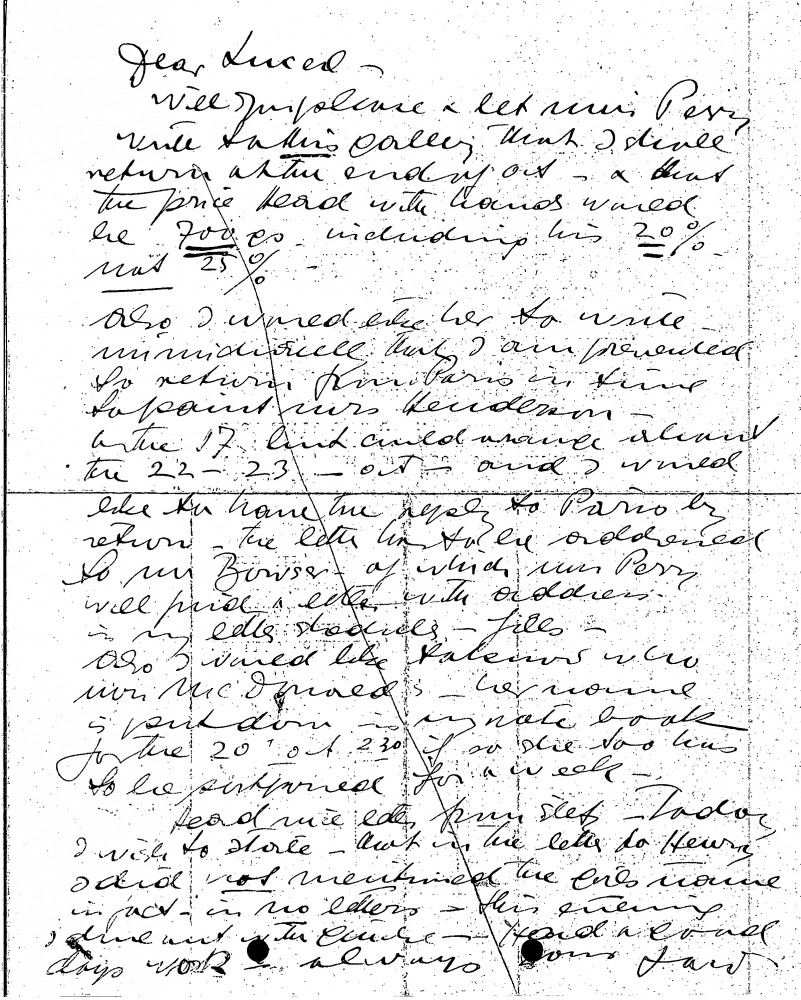 Dear
Will you please & let miss Perry
write to this gallery that I shall
return at the end of oct - & that
the price Head with hands would
be 700 gs including his 20%
not 25% -
Also I would like her to write
immediately that I am prevented
to return from Paris in time
to paint mrs Henderson -
on the 17 but could arrange about
the 22 - 23 - oct - and I would
like to have the reply to Paris by
return - the letter has to be addressed
to mr Bowser - of which miss Perry
will find a letter with address
in my letter - files -
Also I would like to know who
miss McDonald is - her name
is put down in my note book
for the 20 oct 230 if so she too has
to be postponed for a week -
Had nice letter from - Today
I wish to state - that in the letter to Henry
I did not mentioned the girls name
in fact - in no letters - this evening
I dine out with - Had a good
days work - always yours